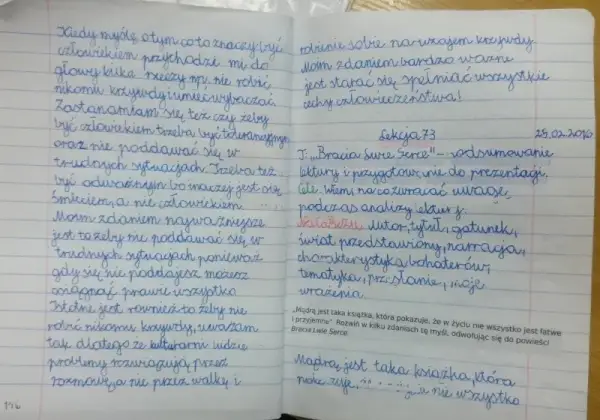 Kiedy myślę o tym co to znaczy być
człowiekiem przychodzi mi do
głowy kilka rzeczy np. nie robić
nikomu krzywdy i umieć wybaczać.
Zastanawiam się też czy żeby
być człowiekiem trzeba być tolerancyjnym
oraz nie poddawać się w
trudnych sytuacjach. Trzeba też
być odważnym bo inaczej jest się
śmieciem, a nie człowiekiem
Moim zdaniem najważniejsze
jest to żeby nie poddawać się w
trudnych sytuacjach ponieważ
gdy się nie poddajesz możesz
osiągnąć prawie wszystko
Istotne jest również to żeby nie
robić nikomu krzywdy, uważam
tak dlatego że kulturalni ludzie
problemy rozwiązują przez
rozmowę, a nie przez walkę i
robienie sobie na wzajem krzywdy.
Moim zdaniem bardzo ważne
jest starać się spełniać wszystkie
cechy człowieczeństwa!
Lekcja 73
T: „Bracia Lwie Serce" – podsumowanie
lektury i przygotowanie do prezentacji.
Cele: Wiem, na co zwracać uwagę,
podczas analizy lektury.
Autor, tytuł, gatunek,
świat przedstawiony, narracja,
charakterystyka bohaterów,
tematyka, przesłanie, moje
wrażenia.
„Mądra jest taka książka, która pokazuje, że w życiu nie wszystko jest łatwe
i przyjemne". Rozwiń w kilku zdaniach tę myśl, odwołując się do powieści
Bracia Lwie Serce.
Mądra jest taka książka, która
pokazuje, nie wszystko